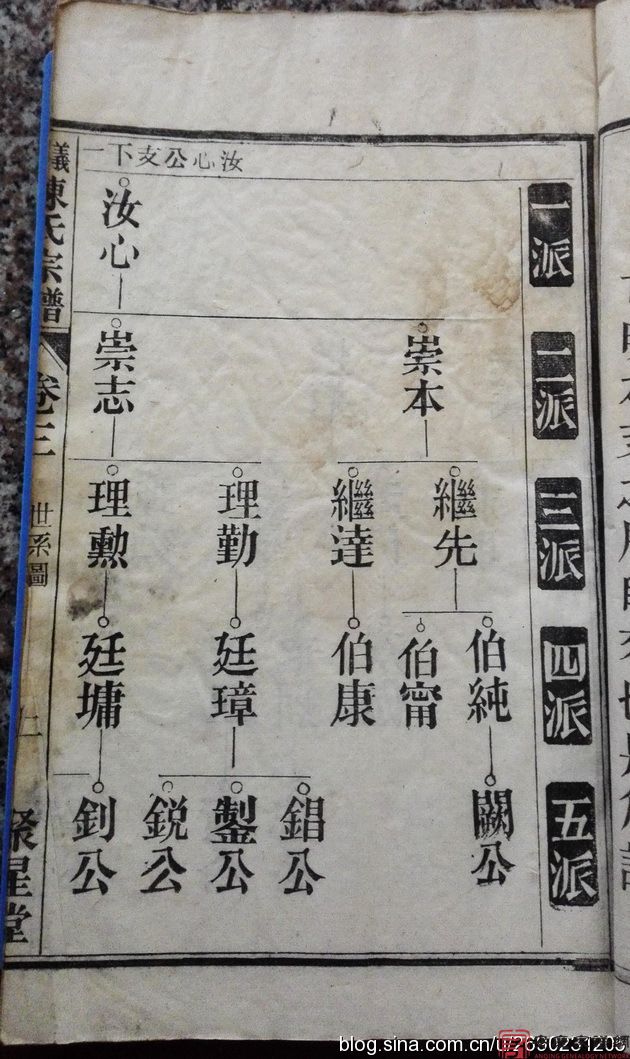 一派
二派
三派
四派
五派
汝心公支下一
汝心
崇本
崇志
繼先
繼達
理勤
理勲
伯純
伯甯
伯康
廷璋
廷墉
闕公
錩公
鏨公
鋭公
釗公
陳氏宗譜
卷三
世系圖
聚星堂
blog.sina.com.cn/u/2630231203
ANQING GENEALOGY NETWORK